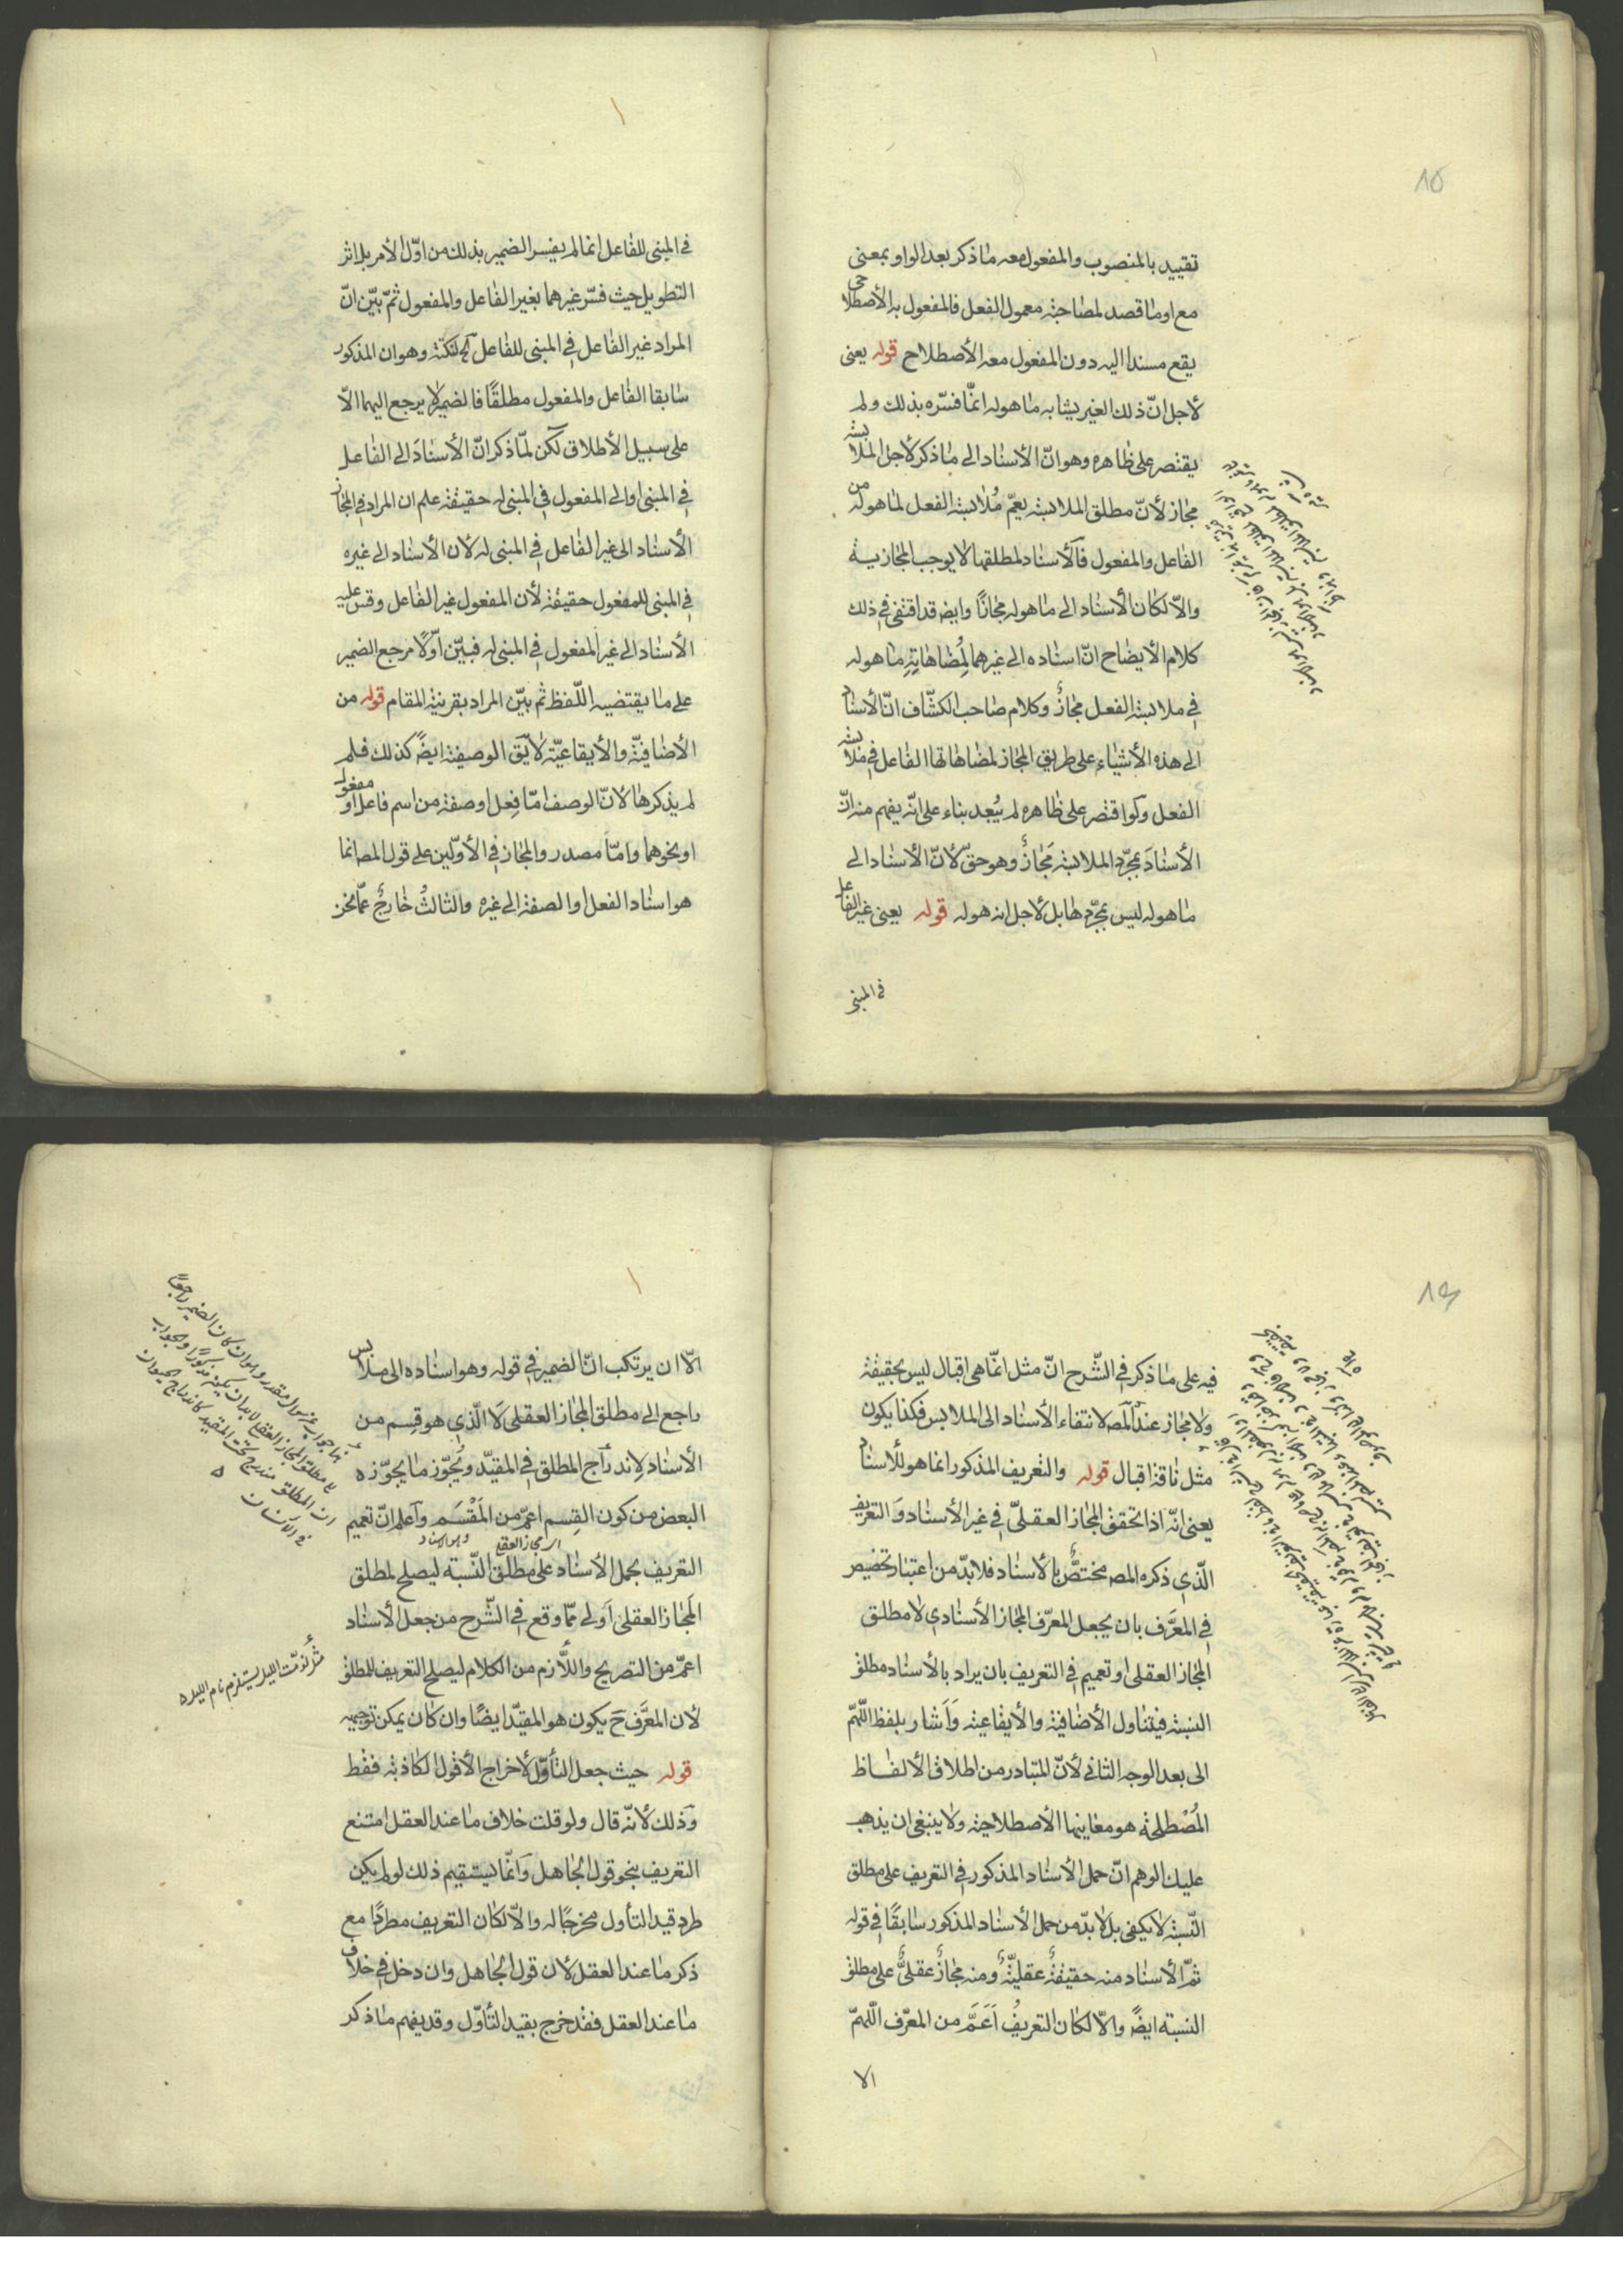 ١٥
تقييد بالمنصوب والمفعول معه ماذكر بعد الواو بمعنى
مع او ما قصد لمصاحبته معمول الفعل فالمفعول به الأصطلاحى
يقع مسندا اليه دون المفعول معه الأصطلاح قوله يعنى
لأجل انّ ذلك الغير يشابه ما هو له انّما فسّره بذلك ولم
يقتصر على ظاهره وهو انّ الأسناد الى ما ذكر لأجل الملابسة
مجاز لأنّ مطلق الملابسة يعمّ مُلابسة الفعل لما هو له من
الفاعل والمفعول فالأسناد لمطلقها لا يوجب المجازية
والّا لكان الأسناد الى ما هو له مجازًا وايضه قد اقتفى فى ذلك
كلام الأيضاح انّ اسناده الى غيرهما لِمُضاهاتِهِ ما هو له
فى ملابسة الفعل مجازٌ وكلام صاحب الكشّاف انّ الأسناد
الى هذه الأشياء على طريق المجاز لمضاهاتها الفاعل فى ملابسة
الفعل ولو اقتصر على ظاهره لم يُبعد بناء على انّه يفهم منه انّ
الأسنادَ بمجرّد الملابسة مَجازٌ وهو حقّ لأنّ الأسناد الى
ما هو له ليس بمجرّدها بل لأجل انه هو له قوله يعنى غير الفاعل
فى المبنى
فى المبنى للفاعل انما لم يفسر الضمير بذلك من اوّل الأمر بل اثر
التطويل حيث فسّر غيرهما بغير الفاعل والمفعول ثمّ بيّن انّ
المراد غير الفاعل فى المبنى للفاعل آلخ لنكتة وهو ان المذكور
سابقا الفاعل والمفعول مطلقًا فالضمير لا يرجع اليهما الّا
على سبيل الأطلاق لكن لمّا ذكر انّ الأسنادَ الى الفاعل
فى المبنى او الى المفعول فى المبنى له حقيقة علم ان المراد فى المجاز
الأسناد الى غير الفاعل فى المبنى له لأن الأسناد الى غيره
فى المبنى للمفعول حقيقة لأن المفعول غير الفاعل وقس عليه
الأسناد الى غير المفعول فى المبنى له فبيّن اوّلًا مرجع الضمير
على ما يقتضيه اللّفظ ثم بيّن المراد بقرينة المقام قوله من
الأضافيّة والأيقاعيّة لا يق الوصفية ايضً كذلك فلم
لم يذكرها لأنّ الوصف امّا فِعل او صفة من اسم فاعل او مفعول
او نحوهما وامّا مصدر والمجاز فى الأوّلين على قول المصه انما
هو اسناد الفعل او الصفة الى غيره والثالثُ خارجٌ عمّا نحن
١٦
فيه على ما ذكر فى الشّرح انّ مثل انّما هى اقبال ليس بحقيقة
ولا مجاز عند المصه لانتفاء الأسناد الى الملابس فكذا يكون
مثل ناقة اقبال قوله والتعريف المذكور انما هو للأسناد
يعنى انّه اذا تحقق المجاز العقلىّ فى غير الأسناد وَ التعريف
الّذى ذكره المصه مختصٌّ بالأسناد فلا بدّ من اعتبار تخصيص
فى المعَرَّف بان يجعل المعرّف المجاز الأسنادى لا مطلق
المجاز العقلى او تعميم فى التعريف بان يراد بالأسناد مطلق
النسبة فيتناول الأضافية والأيقاعية وَ اَشار بلفظ اللّهمّ
الى بعد الوجه الثانى لأنّ المتبادر من اطلاق الألفاظ
المُصْطلحة هو معانيها الأصطلاحية ولا ينبغى ان يذهب
عليك الوهم انّ حمل الأسناد المذكور فى التعريف على مطلق
النّسبة لا يكفى بل لا بدّ من حمل الأسناد المذكور سابقًا فى قوله
ثمّ الأسناد منه حقيقةٌ عقليّةٌ ومنه مجازٌ عقلىٌّ على مطلق
النسبة ايضً والّا لكان التعريفُ اَعَمَّ من المعرّف اللّهمّ
الا
الّا ان يرتكب انّ الضمير فى قوله وهو اسناده الى ملابس
راجع الى مطلق المجاز العقلى لَا الّذى هو قِسم من
الأسناد لاندراج المطلق فى المقيّد ونُجوّز ما يجوّزه
البعض من كون القِسم اعمّ من المَقْسَم وَ اعلم انّ تعميم
اى مجاز العقلى وهو الاسناد
التعريف بحمل الأسناد على مطلق النّسبة ليصلح لمطلق
المَجاز العقلىّ اَولى ممّا وقع فى الشّرح من جعل الأسناد
اعمّ من الصّريح واللّازم من الكلام ليصلح التعريف للمطلق
لأن المعَرَّف حَ يكون هو المقيّد ايضًا وان كان يمكن توجيهه
قوله حيث جعل التأوّل لأخراج الأقول الكاذبة فقط
وَ ذلك لأنّه قال ولو قلت خلاف ما عند العقل امتنع
التعريف بنحو قول الجاهل وَ انّما يستقيم ذلك لو لم يكن
طرد قيد التأول مخرجًا له والّا لكان التعريف مطردًا مع
ذكر ما عند العقل لأن قول الجاهل وان دخل فى خلاف
ما عند العقل فقد خرج بقيد التأوّل وقد يفهم ما ذكر
هذا جواب عن سوال مقدر وهو ان كان الضمير راجعًا
لا مطلق المجاز العقلى لا بد ان يكون مذكورًا والجواب
ان المطلق مندرج تحت المقيد كاندراج الحيوان
فى الانسان
مثل نوّمت الليل يستلزم نام الليل